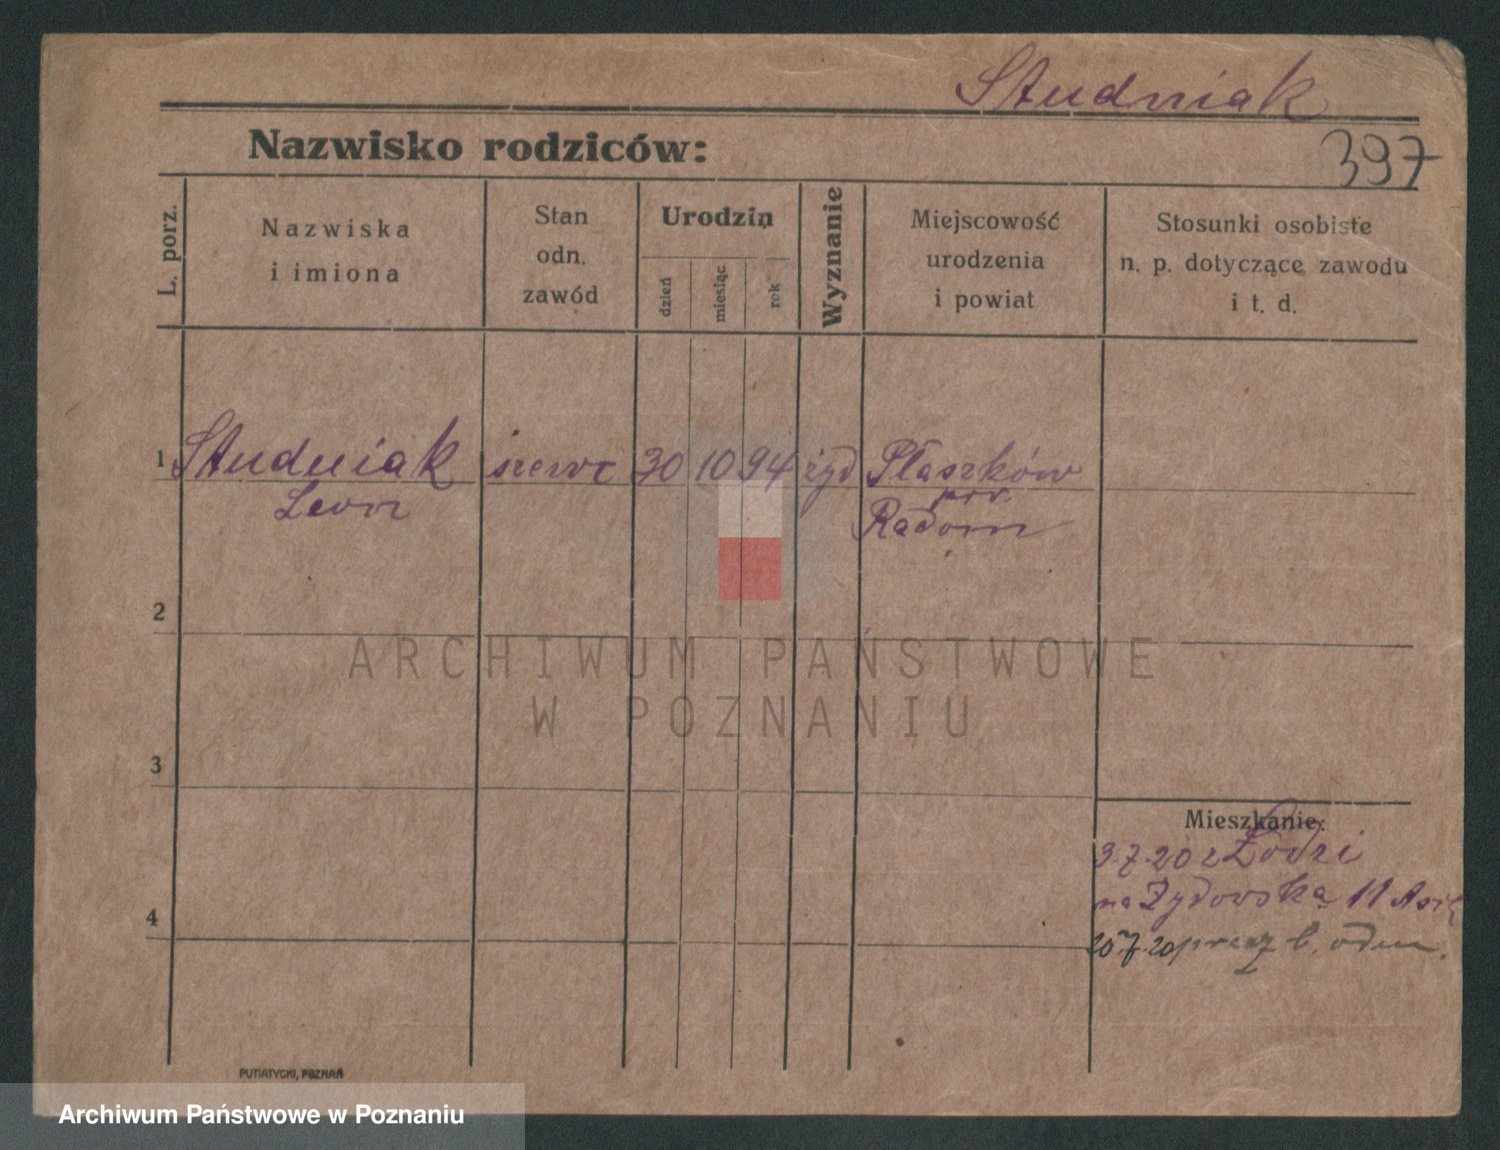 Studniak
397
Nazwisko rodziców:
L. porz.
Nazwiska
i imiona
Stan
odn.
zawód
Urodzin
dzień
miesiąc
rok
Wyznanie
Miejscowość
urodzenia
i powiat
Stosunki osobiste
n. p. dotyczące zawodu
i t. d.
1 Studniak szewc 30 10 94 żyd Płaszków
Leon pow.
Radom
2
ARCHIWUM PAŃSTWOWE
W POZNANIU
3
Mieszkanie:
3.7.20 z Łodzi
na Żydowską 11
4
20.7.20 precz b. odm.
PUTIATYCKI, POZNAŃ
Archiwum Państwowe w Poznaniu